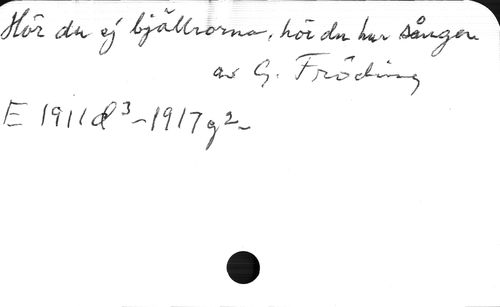 Hör du ej bjällrorna, hör du hur sången
av G. Fröding
E 1911 d³ - 1917 g² -